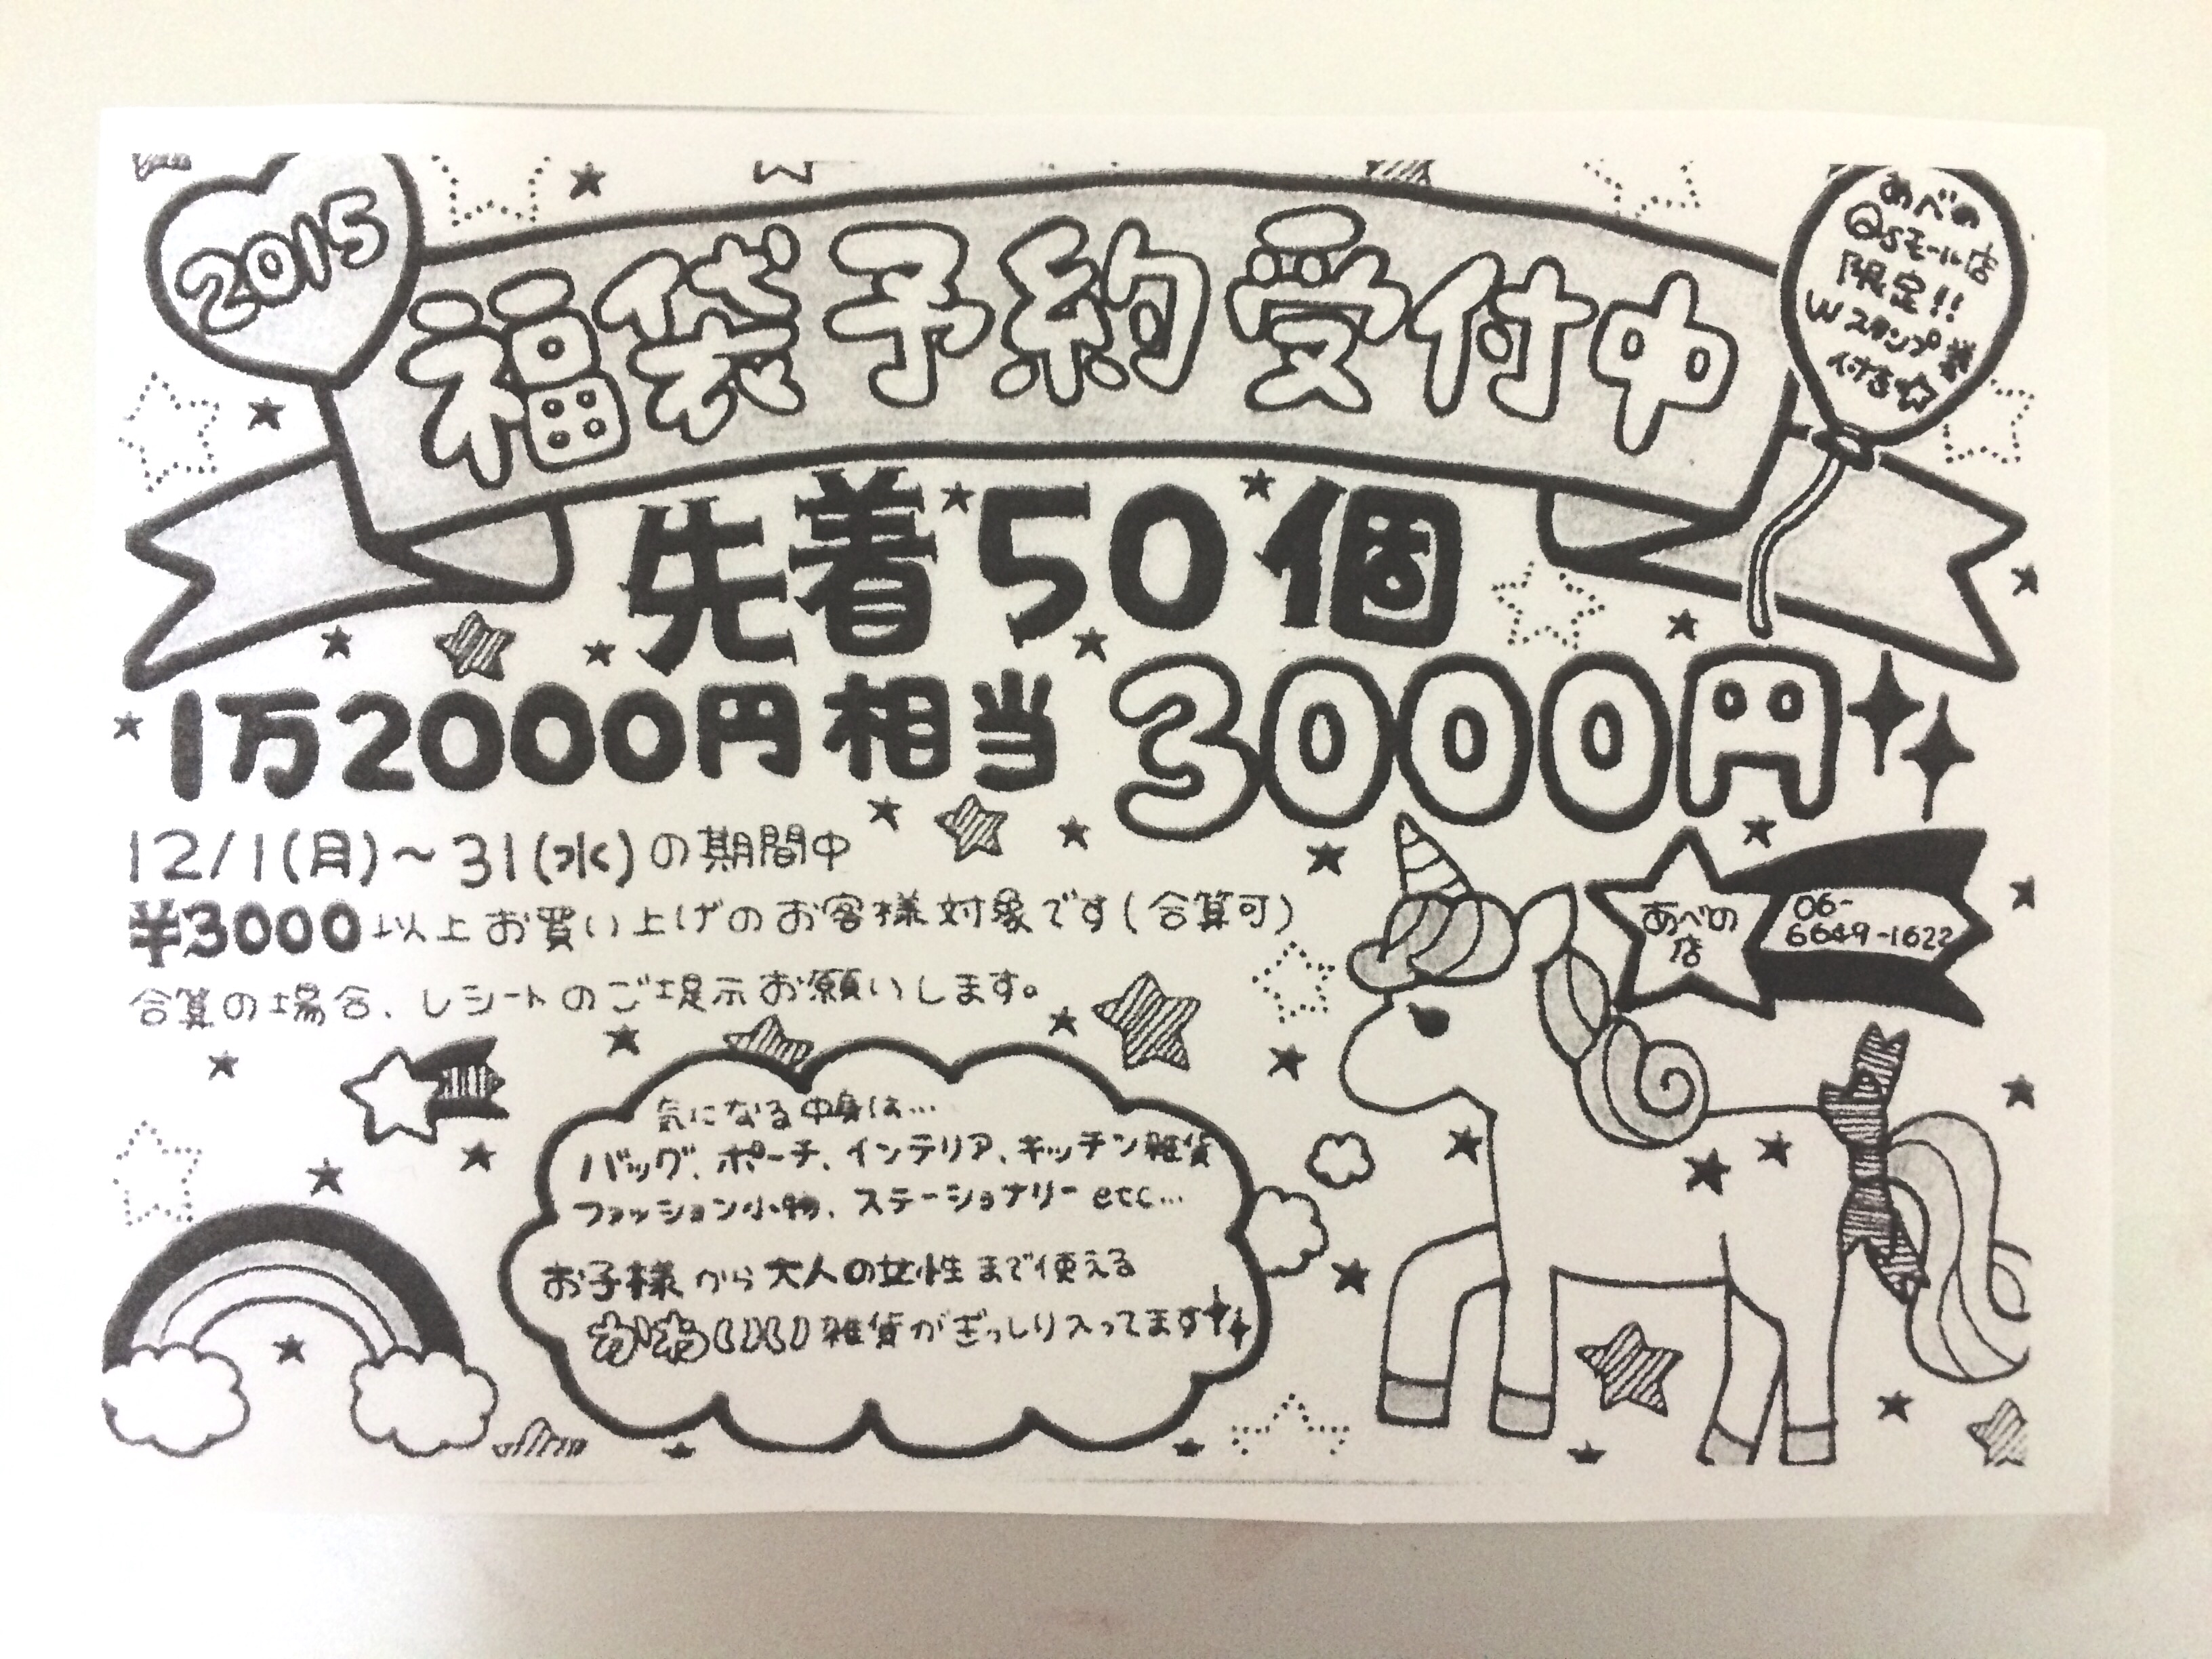 2015
福袋予約受付中
あべの
Qsモール店
限定!!
Wスタンプ券
付き☆
先着50個
1万2000円相当 3000円
12/1(月)～31(水)の期間中
¥3000以上お買い上げのお客様対象です(合算可)
合算の場合、レシートのご提示お願いします。
あべの
店
06-
6649-1622
気になる中身は…
バッグ、ポーチ、インテリア、キッチン雑貨
ファッション小物、ステーショナリーetc…
お子様から大人の女性まで使える
かわいい雑貨がぎっしり入ってます